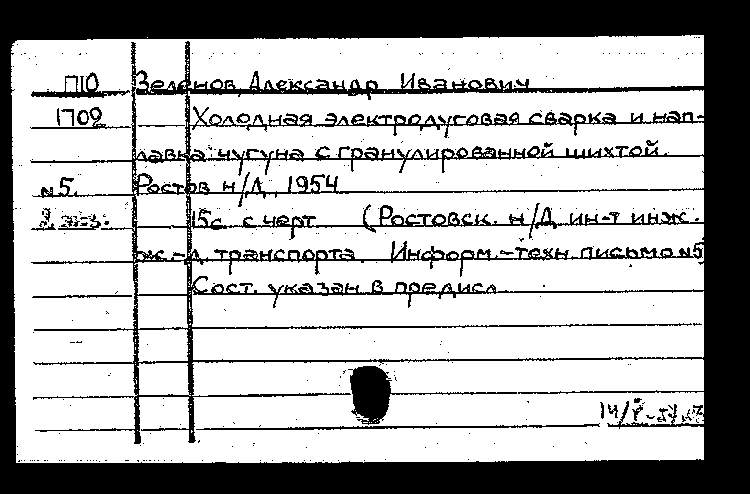 П10 Зеленов, Александр Иванович
1702 Холодная электродуговая сварка и нап-
лавка чугуна с гранулированной шихтой.
№5. Ростов н/Д, 1954
15с. с черт. (Ростовск. н/Д ин-т инж.
ж.-д. транспорта. Информ.-техн. письмо №5
Сост. указан в предисл.